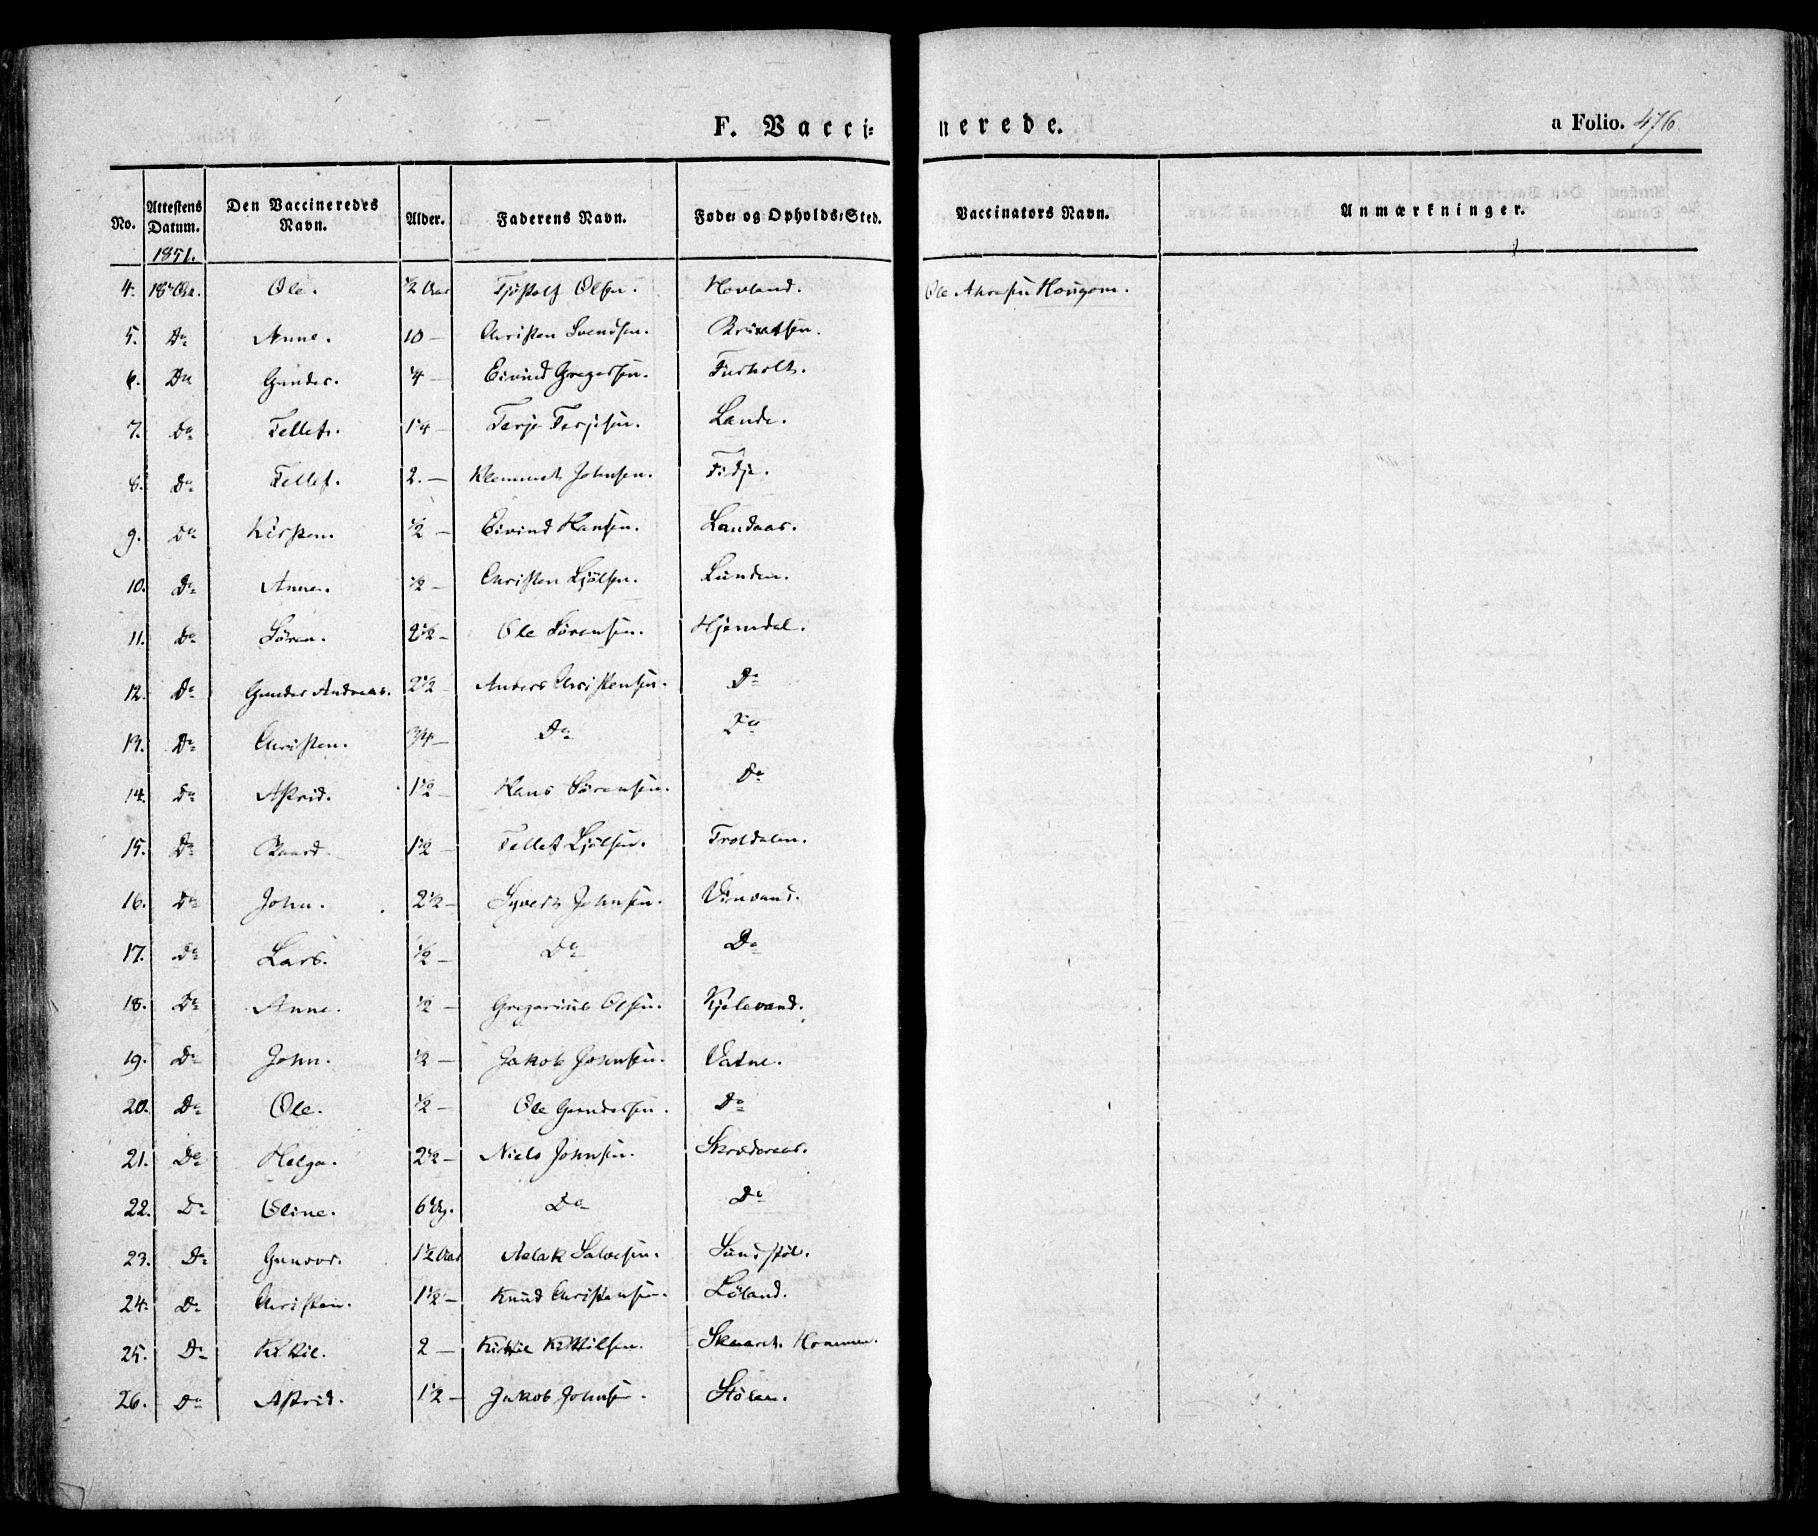 F. Vaccinerede.
a Folio. 476.
No. Attestens Datum. Den Vaccineredes Navn. Alder. Faderens Navn. Føde- og Opholds-Sted. Vaccinators Navn. Anmærkninger.
1851.
4. 18 Ole. 1/2 Aar Olsen. Hovland. Ole
5. Do Anne. 10 — Christen Svendsen.
6. Do Gunder. 1/4 — Eivind Gregersen. Furholt.
7. Do Tellef. 1 1/4 — Terje Terjesen. Lande.
8. Do Tellef. 2. — Klemmet Johnsen. Fidje.
9. Do Kirsten. 1/2 — Eivind Hansen. Landaas.
10. Do Anne. 1/2 — Christen Ljølsen. Lunden.
11. Do Søren. 2 1/2 — Ole Sørensen. Hjemdal.
12. Do Gunder Andreas. 2 1/2 — Anders Christensen. Do
13. Do Christen. 3/4 — Do Do
14. Do Astrid. 1 1/2 — Hans Sørensen. Do
15. Do Baard. 1 1/2 — Tellef Ljølsen. Troldalen.
16. Do John. 2 1/2 — Syvert Johnsen.
17. Do Lars. 1/2 — Do Do
18. Do Anne. 1/2 — Gregorius Olsen. Kjelevand.
19. Do John. 1/2 — Jakob Johnsen. Vatne.
20. Do Ole. 1/2 — Ole Gundersen. Do
21. Do Helga. 2 1/2 — Niels Johnsen. Skræderaas.
22. Do Oline. 6 Ug. Do Do
23. Do Gunvor. 1 1/2 Aar Aslak Salvesen. Sundstøl.
24. Do Christen. 1 1/2 — Knud Christensen. Løland.
25. Do Kittil. 2 — Kittil Kittilsen. Hommen.
26. Do Astrid. 1 1/2 — Jakob Johnsen. Stølen.